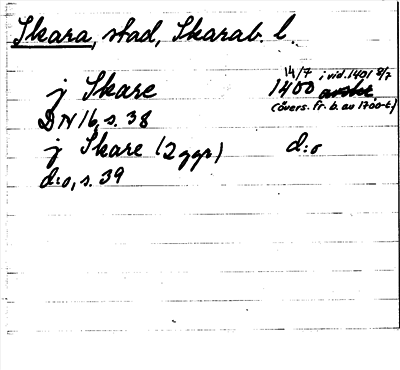 Skara, stad, Skarab. l.
14/7 i vid. 1401 8/7
j Skare 1400 avskr.
(övers. fr. b. av 1700-t)
DN 16, s. 38
j Skare (2 ggr) d:o
d:o, s. 39